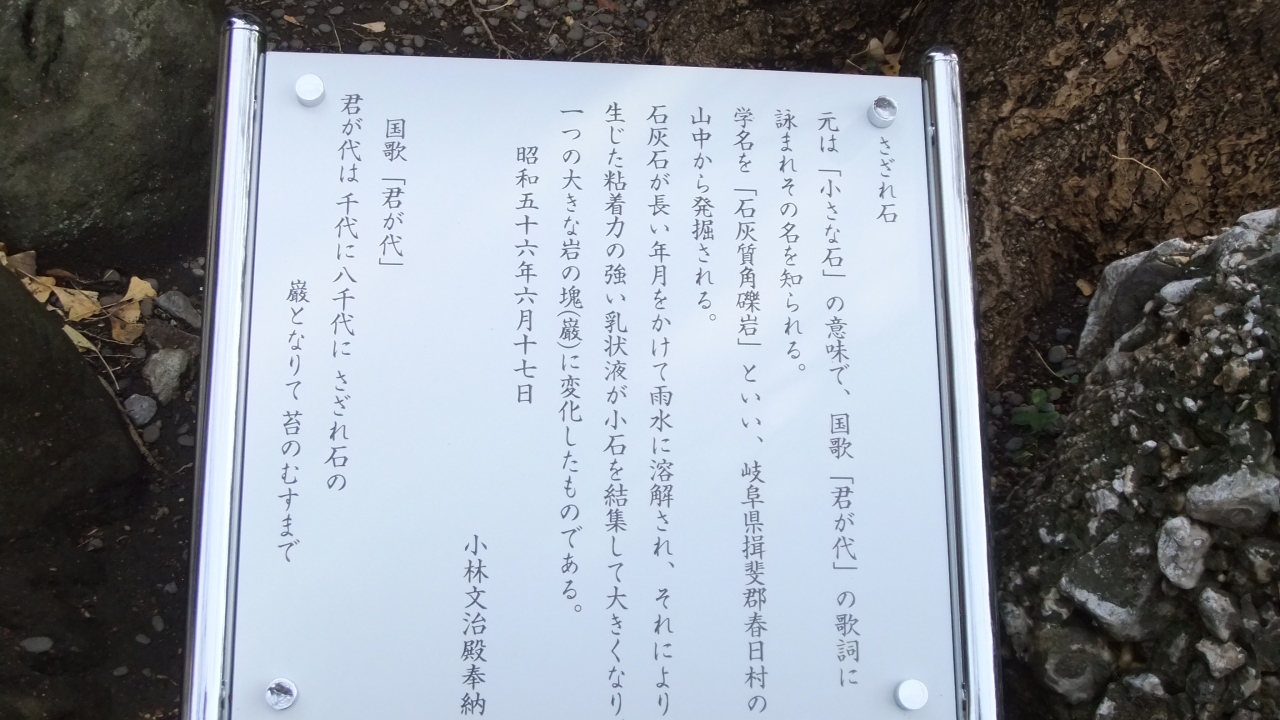 さざれ石
元は「小さな石」の意味で、国歌「君が代」の歌詞に
詠まれその名を知られる。
学名を「石灰質角礫岩」といい、岐阜県揖斐郡春日村の
山中から発掘される。
石灰石が長い年月をかけて雨水に溶解され、それにより
生じた粘着力の強い乳状液が小石を結集して大きくなり、
一つの大きな岩の塊(巌)に変化したものである。
昭和五十六年六月十七日
小林文治殿奉納
国歌「君が代」
君が代は 千代に八千代に さざれ石の
巌となりて 苔のむすまで